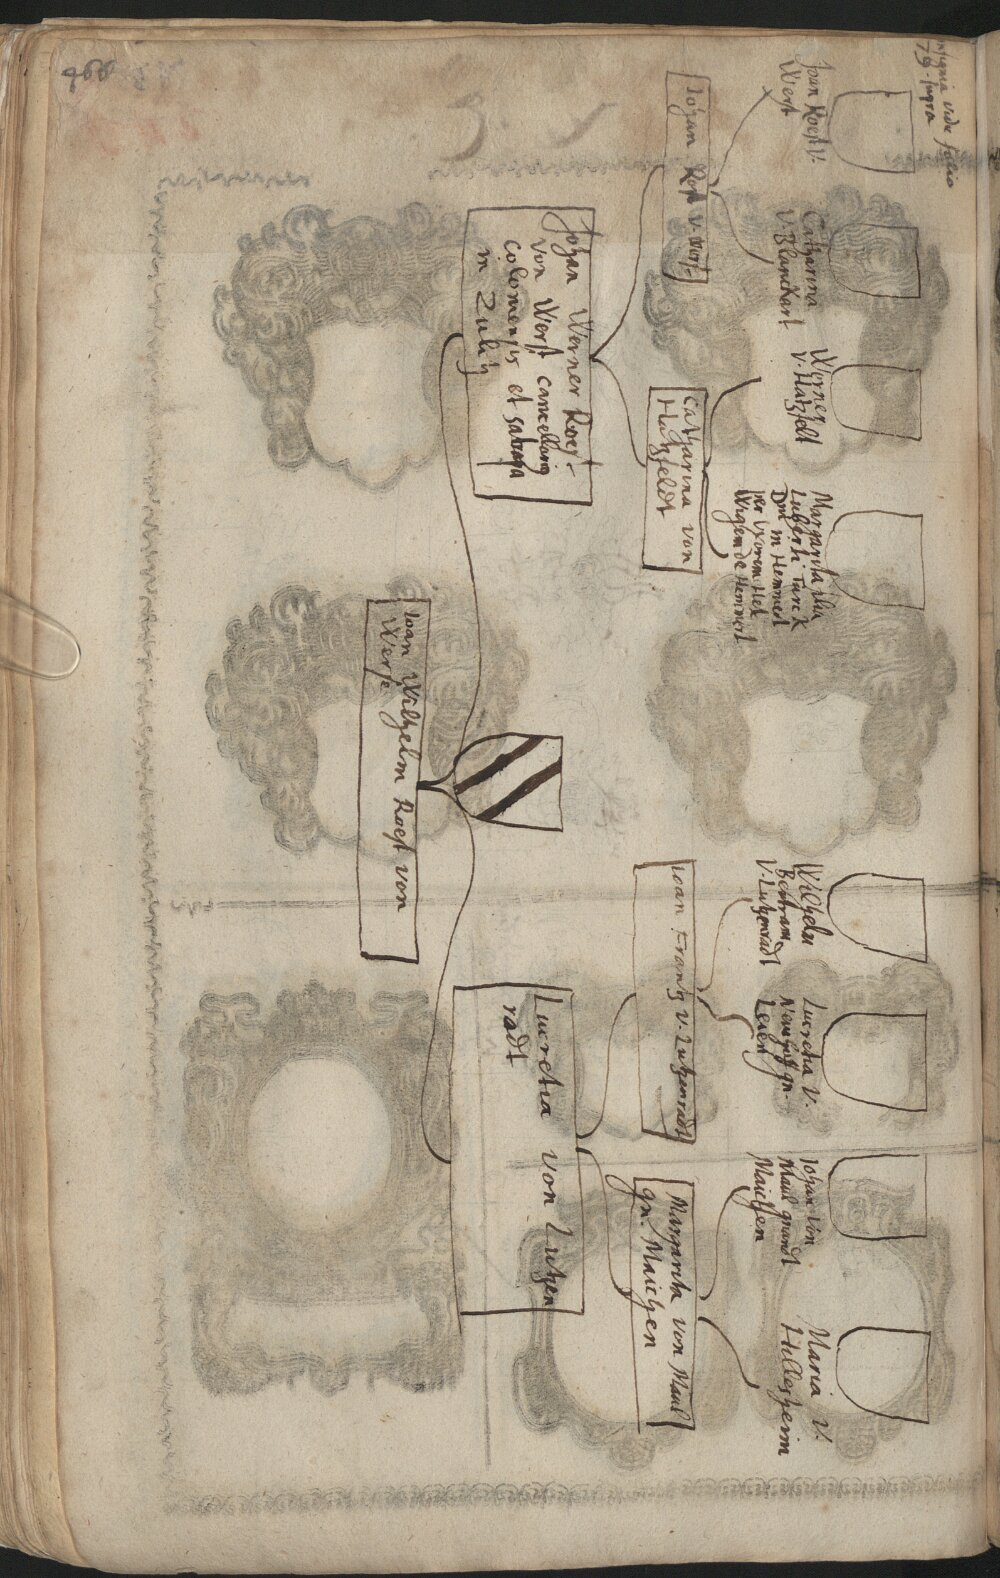 insignia vide folio
79. supra
Joan Roest v.
Werst
Catharina
v. Blanckart
Werner
v. Hatzfelt
Margarita filia
Luberti Turck
Dni in Hemmert
per uxorem Het
de Hemmert
Wilhelm
Bertram
v. Lutzenradt
Lucretia v.
Neuhoff gn.
Leien
Johan von
Maul genandt
Maichen
Maria v.
Hillesheim
Johan Roest v. Werst
Catharina von
Hatzfeldt
Joan Frantz v. Lutzenradt
Margarita von Maul
gn. Maichen
Johan Werner Roest
von Werst cancellarius
Coloniensis et
in Zulch
Lucretia von Lutzen
radt
Joan Wilhelm Roest von
Werst